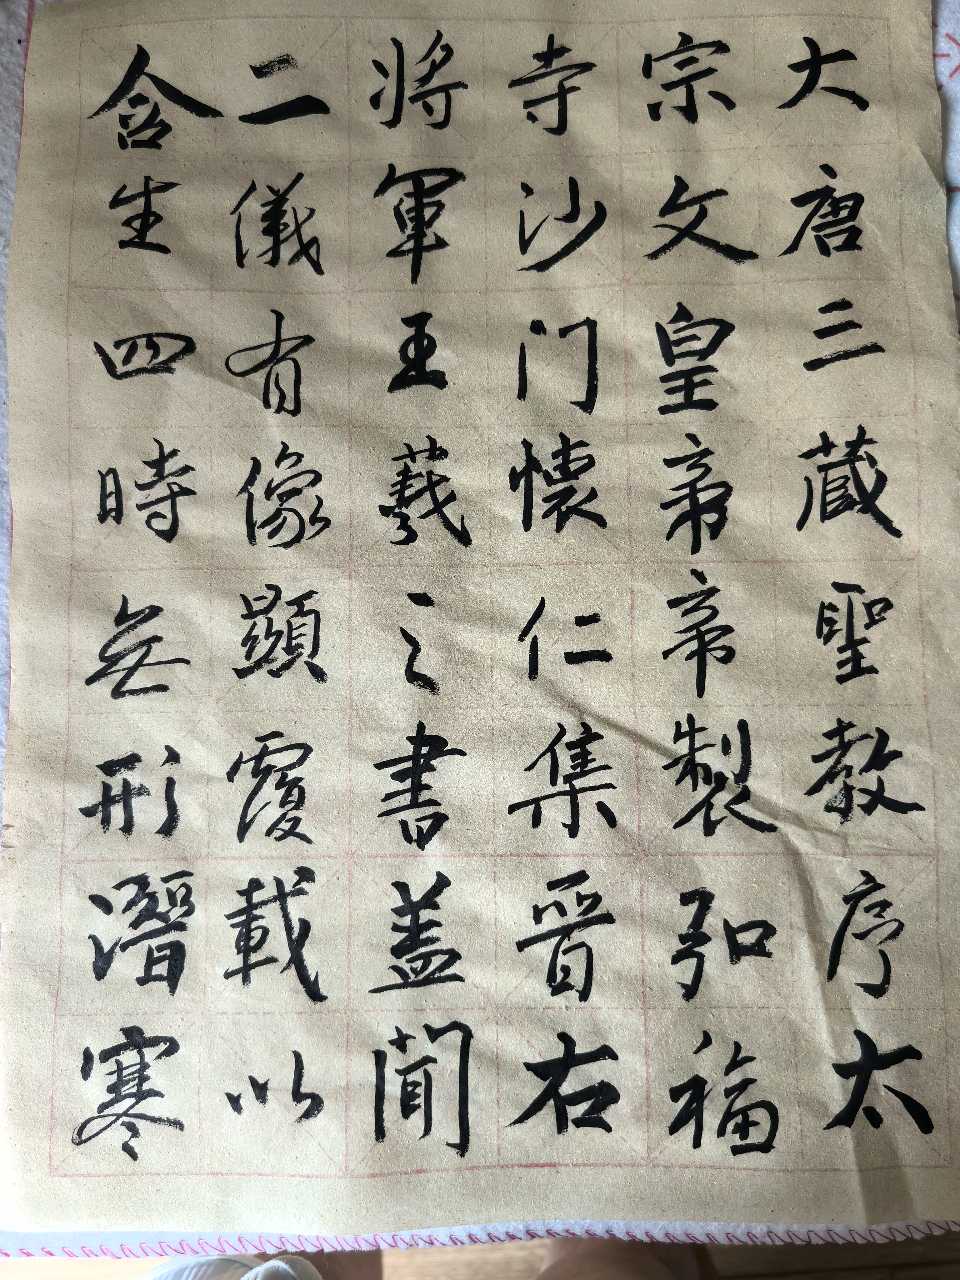 大唐三藏聖教序太
宗文皇帝帝製弘福
寺沙门懐仁集晋右
將軍王羲之書盖聞
二儀有像顯覆載以
含生四時無形潛寒